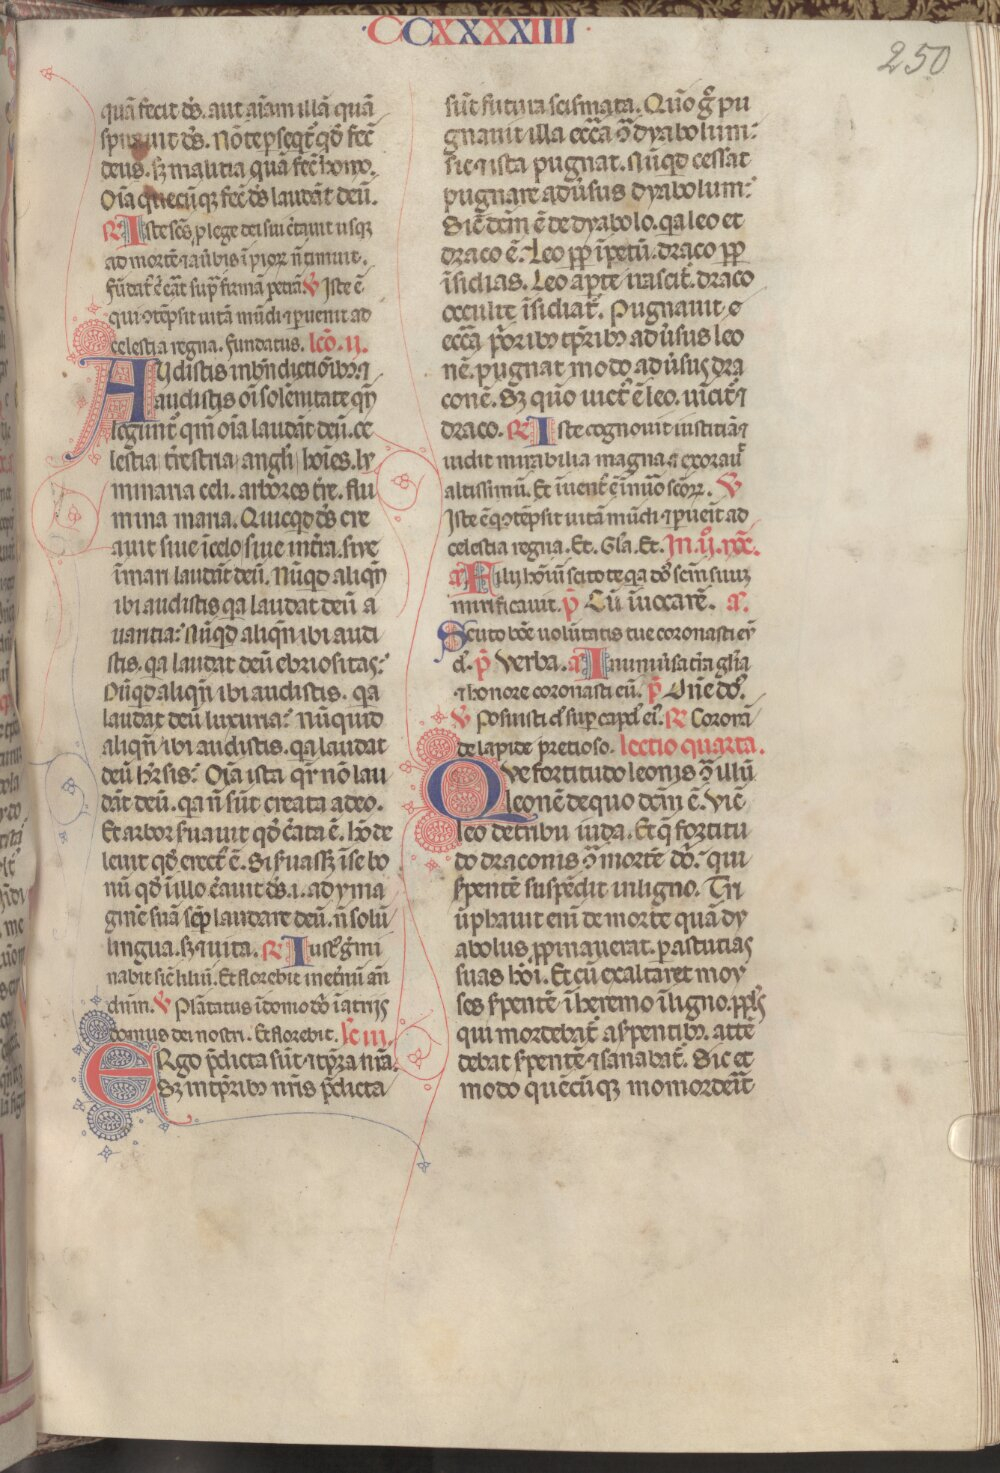 ·CCXXXXIIII·
250
quā fecit dS. aut aīam illā quā
spirauit dS. Nō te pseqt̄ qd̄ fec̄
deus. sz malitia quā fec̄ homo.
Oīa quecūqz fec̄ dS laudāt deū.
R Iste scs p lege dei sui c̄tauit usqz
ad mortē ⁊ a ūbis īpioꝝ n̄ timuit.
fūdat᷑ ē cāt sup firmā petrā. V Iste ē
qui ꝯtēpsit uitā mūdi ⁊ puenit ad
celestia regna. fundatus. lcō. ij.
Audistis in bn̄dictiōibꝫ. ⁊
audistis oī solēnitate qn̄
legunt᷑ qm̄ oīa laudāt deū. ce
lestia trēstria angli hoīes. lu
minaria celi. arbores tr̄e. flu
mina maria. Quicqd dS cre
auit siue ī celo siue in tr̄a. siue
in mari laudāt deū. Nūqd aliqn̄
ibi audistis qa laudat deū a
uaritia? Nūqd aliqn̄ ibi audi
stis. qa laudat deū ebriositas?
Nūqd aliqn̄ ibi audistis. qa
laudat deū luxuria? Nūquid
aliqn̄ ibi audistis. qa laudat
deū hr̄sis? Oīa ista qr̄ nō lau
dāt deū. qa n̄ sūt creata a deo.
Et arbor suauit qd̄ c̄ata ē. hō de
leuit qd̄ erect᷑ ē. Si suassz ī se bo
nū qd̄ ī illo c̄auit dS. i. ad yma
ginē suā sēp laudare deū. n̄ solū
lingua. sz ⁊ uita. R Iust᷑ gmi
nabit sic̄ liliū. Et florebit in et̄nū an̄
dn̄m. V Plātatus ī domo dn̄i ī atriis
domus dei nostri. Et florebit. lc̄ iij.
Ergo p̄dicta sūt ⁊ tp̄ra nr̄a.
Sz in tp̄ribꝫ nr̄is p̄dicta
sūt futura scismata. Quō gͦ pu
gnauit illa ecc̄a ꝯ dyabolum?
sic ⁊ ista pugnat. Nūqd cessat
pugnare adūsus dyabolum?
Sic̄ dcm̄ ē de dyabolo. qa leo et
draco ē. Leo pp īpetū. draco pp
īsidias. Leo apte nascit᷑. draco
occulte īsidiat᷑. Pugnauit ⁊
ecc̄a p̄oribꝫ tp̄ribꝫ adūsus leo
nē. pugnat modo adūsus dra
conē. Sz quō uict᷑ ē leo. uīcit᷑ ⁊
draco. R Iste cognouit iustitiā ⁊
uidit mirabilia magna. ⁊ exorau᷑
altissimū. Et īuent᷑ ē ī nūo scōꝝ. V
Iste ē q ꝯtēpsit uitā mūdi ⁊ pueīt ad
celestia regna. Et. Gl̄a. Et. In. ij. noc̄.
a Filii hoīm scitote qa dō scm̄ suuz
mirificauit. p̄ Cū īuocarē. a.
Scuto bōe volūtatis tue coronasti eū
d. p̄ Verba. a In uniūsa tr̄a gl̄ia
⁊ honore coronasti eū. p̄ Dn̄e dō.
V Posuisti d. sup capd ei. R Coronā
de lapide pretioso. lectio quarta.
Que fortitudo leonis ꝯ illū
leonē de quo dcm̄ ē. Vic̄
leo de tribu iuda. Et q̄ fortitu
do draconis ꝯ mortē dō? qui
s̄pentē suspēdit in ligno. Tri
ūphauit eni de morte quā dy
abolus ppinauerat. p astucias
suas hōi. Et cū exaltaret moy
ses s̄pentē ī heremo ī ligno. ppls
qui mordebāt᷑ a s̄pentibꝫ. attē
debat s̄pentē ⁊ sanabāt᷑. Sic et
modo quēcūqz momordeīt